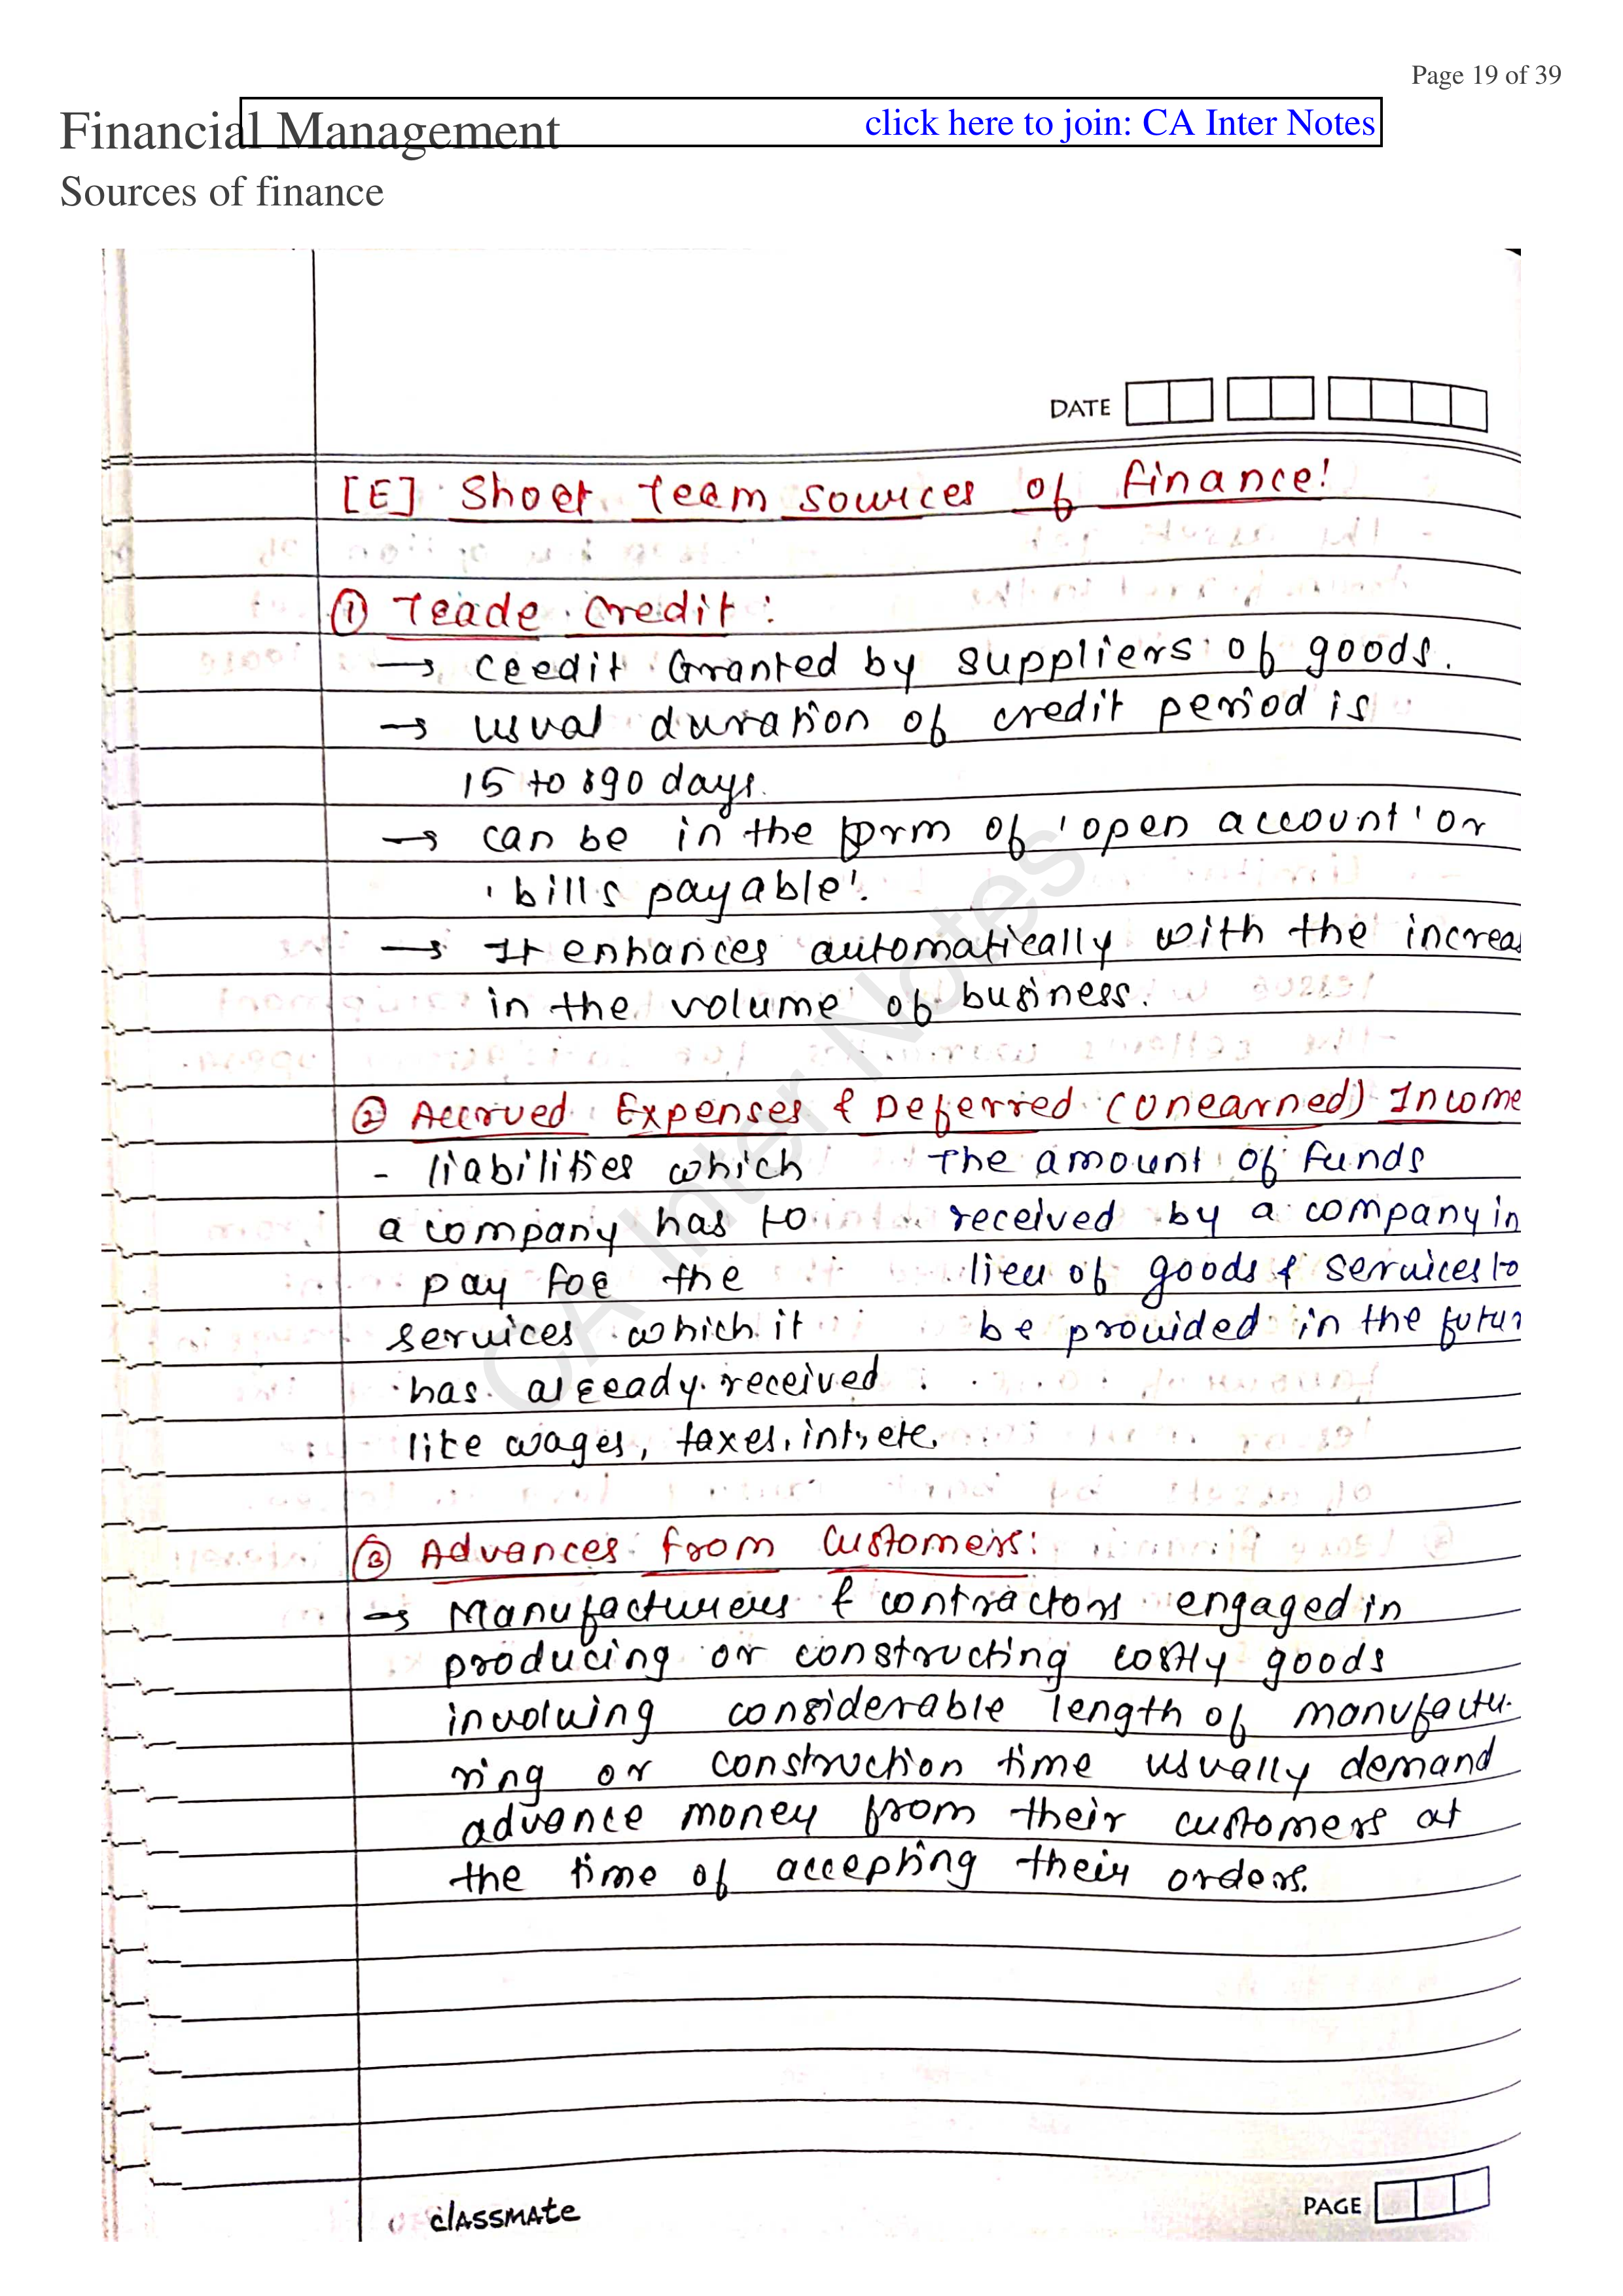 Page 19 of 39
Financial Management
click here to join: CA Inter Notes
Sources of finance
DATE
[E] Short Term Sources of finance!
① Trade Credit :
→ Credit Granted by suppliers of goods.
→ usual duration of credit period is
15 to 90 days.
→ can be in the form of 'open account' or
'bills payable'.
→ It enhances automatically with the increas
in the volume of business.
② Accrued Expenses & Deferred (Unearned) Income
- liabilities which
a company has to
pay for the
services which it
has already received
like wages, taxes, int, etc.
The amount of funds
received by a company in
lieu of goods & services to
be provided in the futur
③ Advances from Customers:
→ Manufacturers & contractors engaged in
producing or constructing costly goods
involving considerable length of manufactu-
ring or construction time usually demand
advance money from their customers at
the time of accepting their orders.
CA Inter Notes
classmate
PAGE